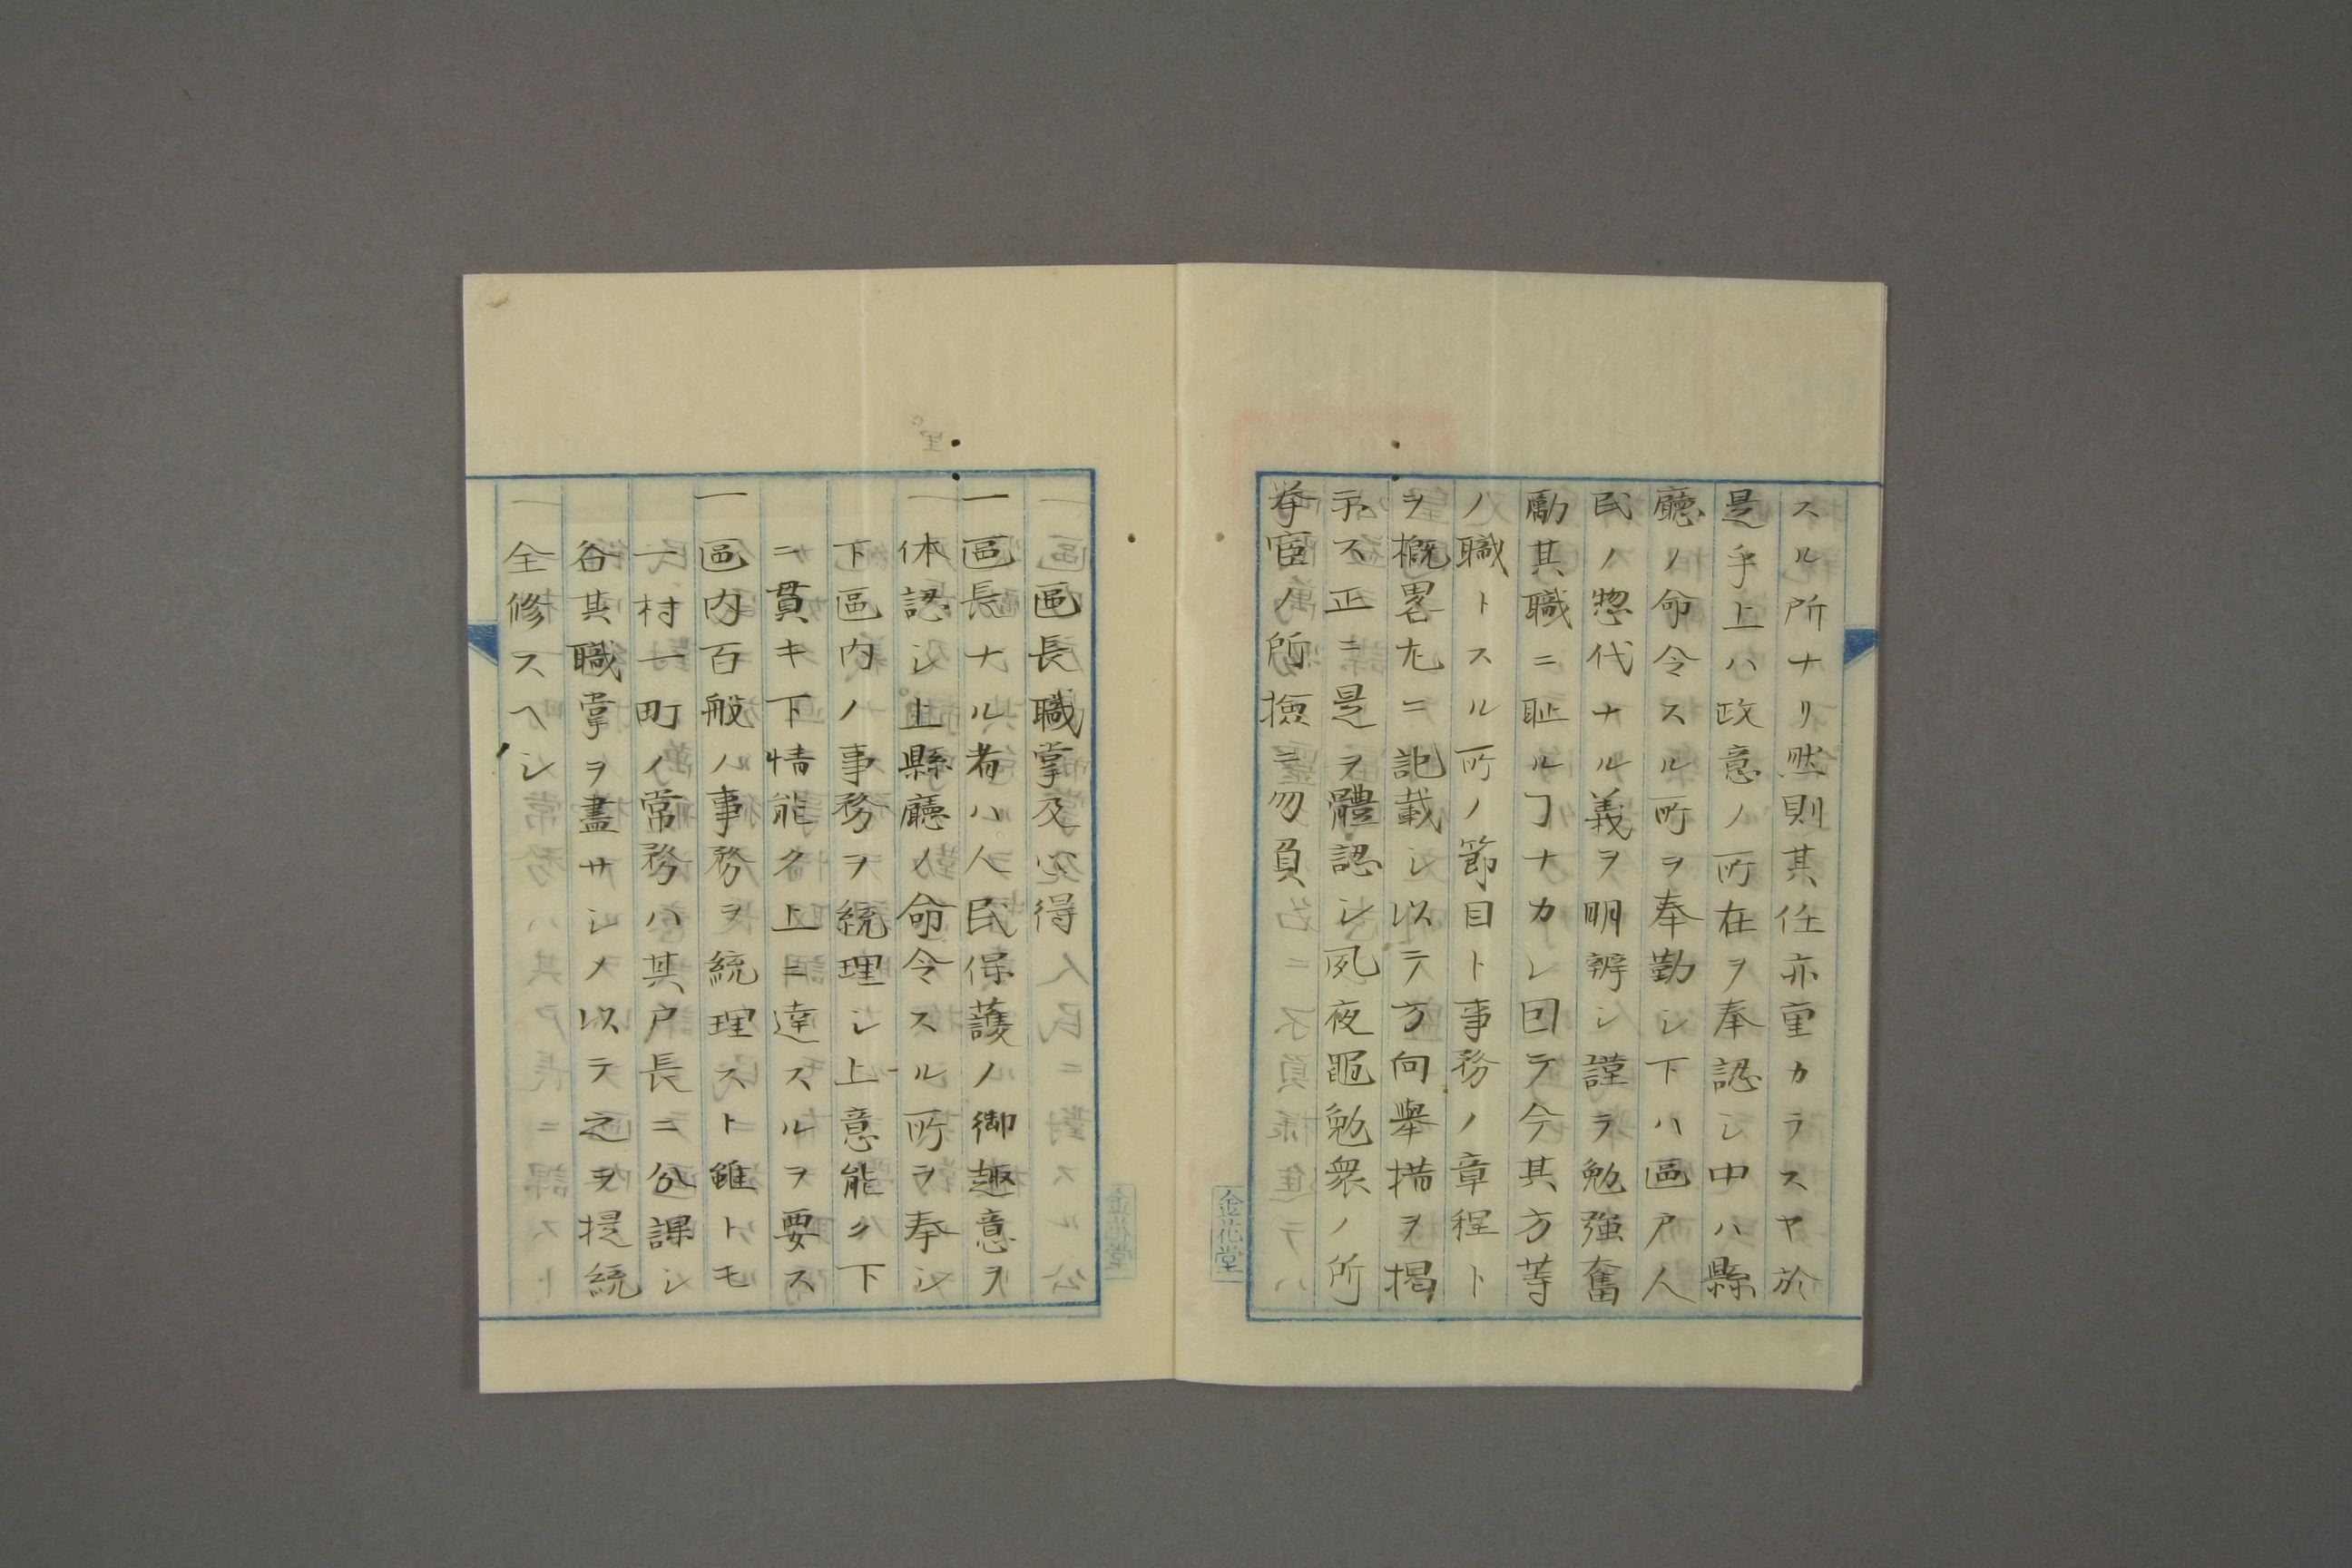 スル所ナリ然則其任亦重カラスヤ於
是乎上ハ政意ノ所在ヲ奉認シ中ハ縣
廳ノ命令スル所ヲ奉勤シ下ハ區戸人
民ノ惣代ナル義ヲ明辨シ謹テ勉強奮
勵其職ニ耻ルヿナカレ因テ今其方等
ノ職トスル所ノ節目ト事務ノ章程ト
ヲ概畧左ニ記載シ以テ方向舉措ヲ掲
示ス正ニ是ヲ體認シ夙夜黽勉衆ノ所
挙官ノ所撿ニ勿負
金花堂
區長職掌及心得
一區長ナル者ハ人民保護ノ御趣意ヲ
体認シ上縣廳ノ命令スル所ヲ奉シ
下區内ノ事務ヲ統理シ上意能ク下
ニ貫キ下情能ク上ニ達スルヲ要ス
一區内百般ノ事務ヲ統理スト雖トモ
一村一町ノ常務ハ其戸長ニ分課シ
各其職掌ヲ盡サシメ以テ之ヲ提統
全修スヘシ